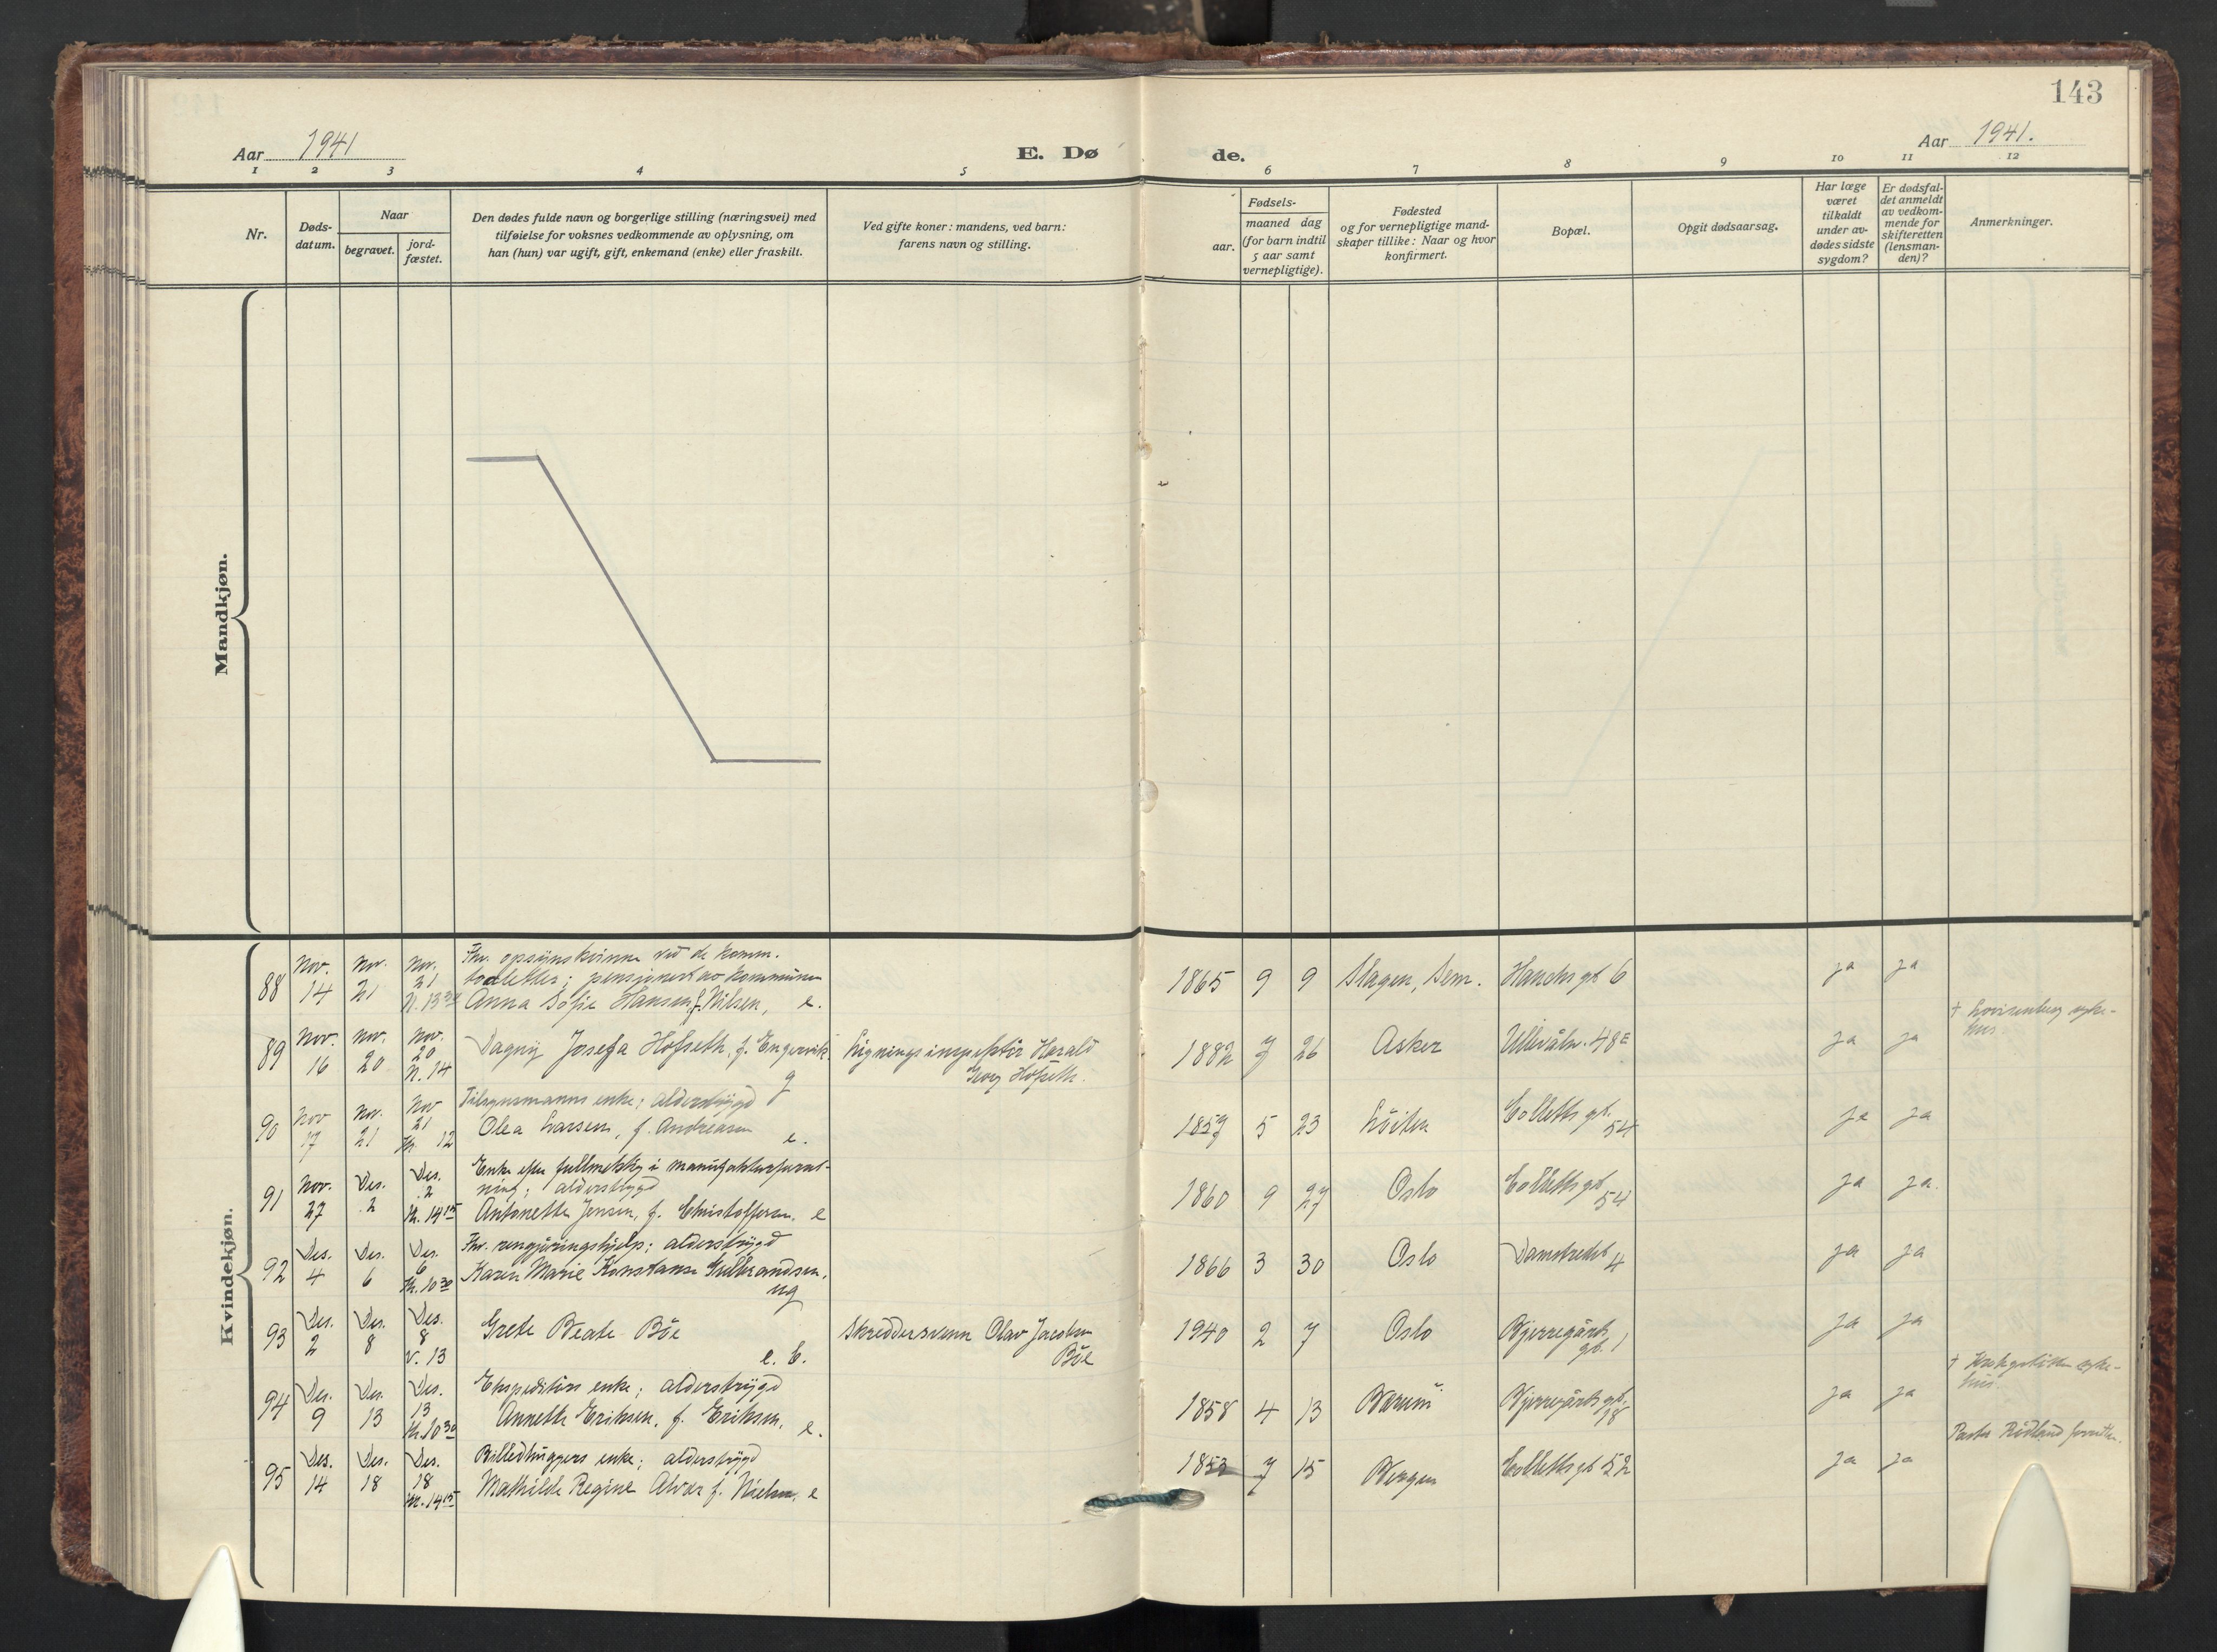 143
Aar 1941
E. Dø
de.
Aar 1941.
1 2 3 4 5 6 7 8 9 10 11 12
Nr.
Døds-
datum.
Naar
begravet.
jord-
fæstet.
Den dødes fulde navn og borgerlige stilling (næringsvei) med
tilføielse for voksnes vedkommende av oplysning, om
han (hun) var ugift, gift, enkemand (enke) eller fraskilt.
Ved gifte koner: mandens, ved barn:
farens navn og stilling.
Fødsels-
aar.
maaned dag
(for barn indtil
5 aar samt
vernepligtige).
Fødested
og for vernepligtige mand-
skaper tillike: Naar og hvor
konfirmert.
Bopæl.
Opgit dødsaarsag.
Har læge
været
tilkaldt
under av-
dødes sidste
sygdom?
Er dødsfal-
det anmeldt
av vedkom-
mende for
skifteretten
(lensman-
den)?
Anmerkninger.
Mandkjøn.
Kvindekjøn.
88 Nov. 14 Nov. 21 Nov. 21 N. 13 30
Fhv. opsynskvinne ved de komm.
toaletter; pensjonert av kommunen
Anna Sofie Hansen, f. Nilsen, e.
1865 9 9 Slagen, Sem. gt 6 ja ja
89 Nov. 16 Nov. 20 Nov. 20 N. 14
Dagny Josefa Hofseth, f. Engervik
g
Ligningsinspektör Harald
Georg Hofseth.
1882 7 26 Asker Ullevålsv. 48E ja ja
† Lovisenberg syke-
hus.
90 Nov 17 Nov. 21 Nov 21 Kr. 12
Tilsynsmanns enke; alderstrygd
Olea Larsen, f. Andreasen e.
1857 5 23 Löiten Colletts gt. 54 ja ja
91 Nov. 27 Des. 2 Des. 2 Kr. 14 15
Enke efter fullmektig i manufakturforret-
ning; alderstrygd
Antonette Jensen, f. Christoffersen. e
1860 9 27 Oslo Colletts gt 54 ja ja.
92 Des. 4 Des. 6 Des. 6 Kr. 10 30
Fhv. rengjöringshjelp; alderstrygd
Karen Marie Konstanse Gulbrandsen.
ug
1866 3 30 Oslo Damstredet 4 ja ja
93 Des. 2 Des. 8 Des. 8 V. 13
Grete Beate Böe
e. b.
Skreddersvenn Olav Jacobsen
Böe
1940 2 7 Oslo Bjerregårds
gt. 1 ja ja
94 Des. 9 Des. 13 Des. 13 Kr. 10 30
Ekspeditörs enke; alderstrygd
Annette Eriksen, f. Eriksen, e.
1858 4 13 Bærum Bjerregårds gt.
18 ja ja
† Krohgstötten syke-
hus.
95 Des. 14 Des. 18 Des. 18 Kr. 14 15
Billedhuggers enke; alderstrygd
Mathilde Regine Alver f. Nielsen, e
1853 7 15 Bergen Colletts gt 52 ja ja
Pastor Rödland forrettet.